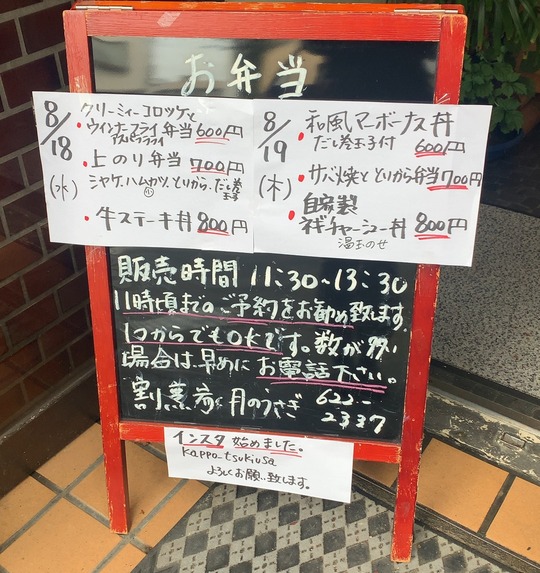 お弁当
8/18
(水)
・クリーミィーコロッケと
ウインナーフライ弁当 600円
アスパラフライ
・上のり弁当 700円
シャケ、ハムカツ、とりから、だし巻
玉子
・牛ステーキ丼 800円
8/19
(木)
・和風マーボーナス丼
だし巻玉子付 600円
・サバ焼ととりから弁当 700円
・自家製
ネギチャーシュー丼 800円
温玉のせ
販売時間 11:30~13:30
11時頃までのご予約をお勧め致します
1つからでもOKです。数が多い
場合は早めにお電話下さい。
割烹 月のうさぎ 622-
2337
インスタ始めました。
kappo_tsukiusa
よろしくお願い致します。